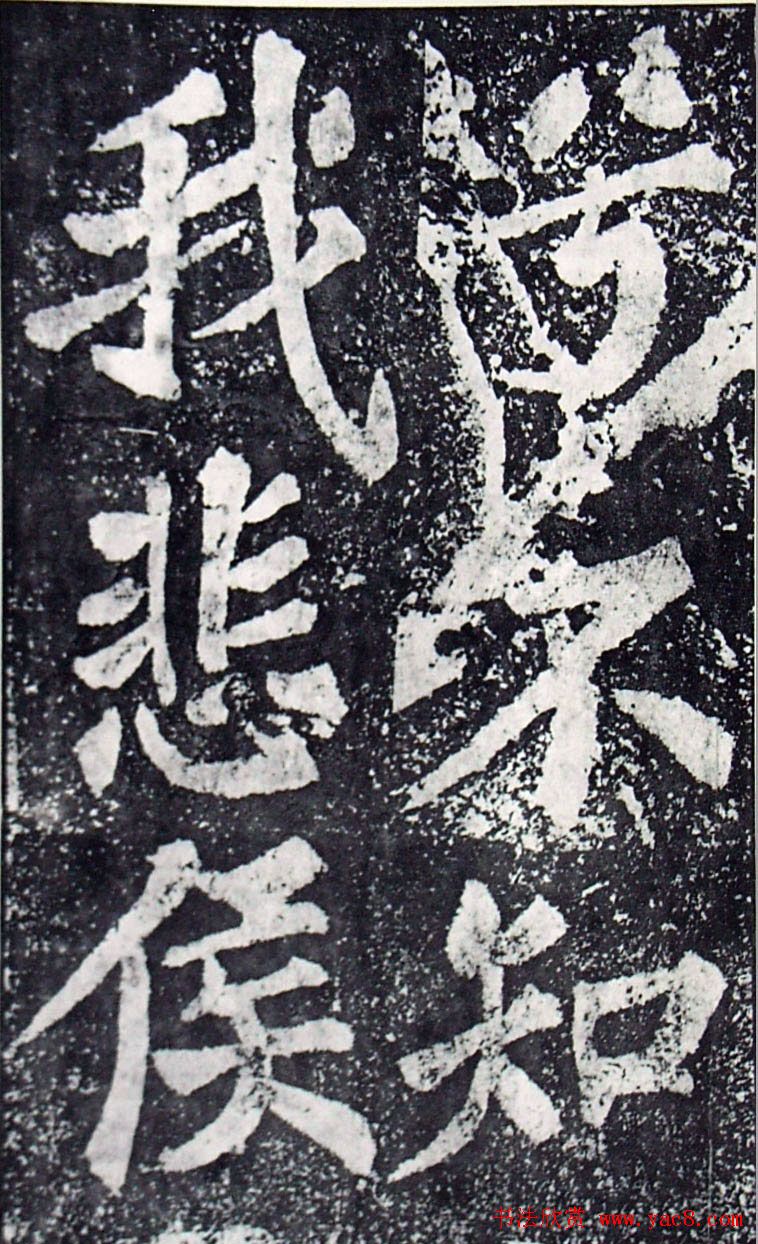 兮不知
我悲侯
书法欣赏 www.yac8.com